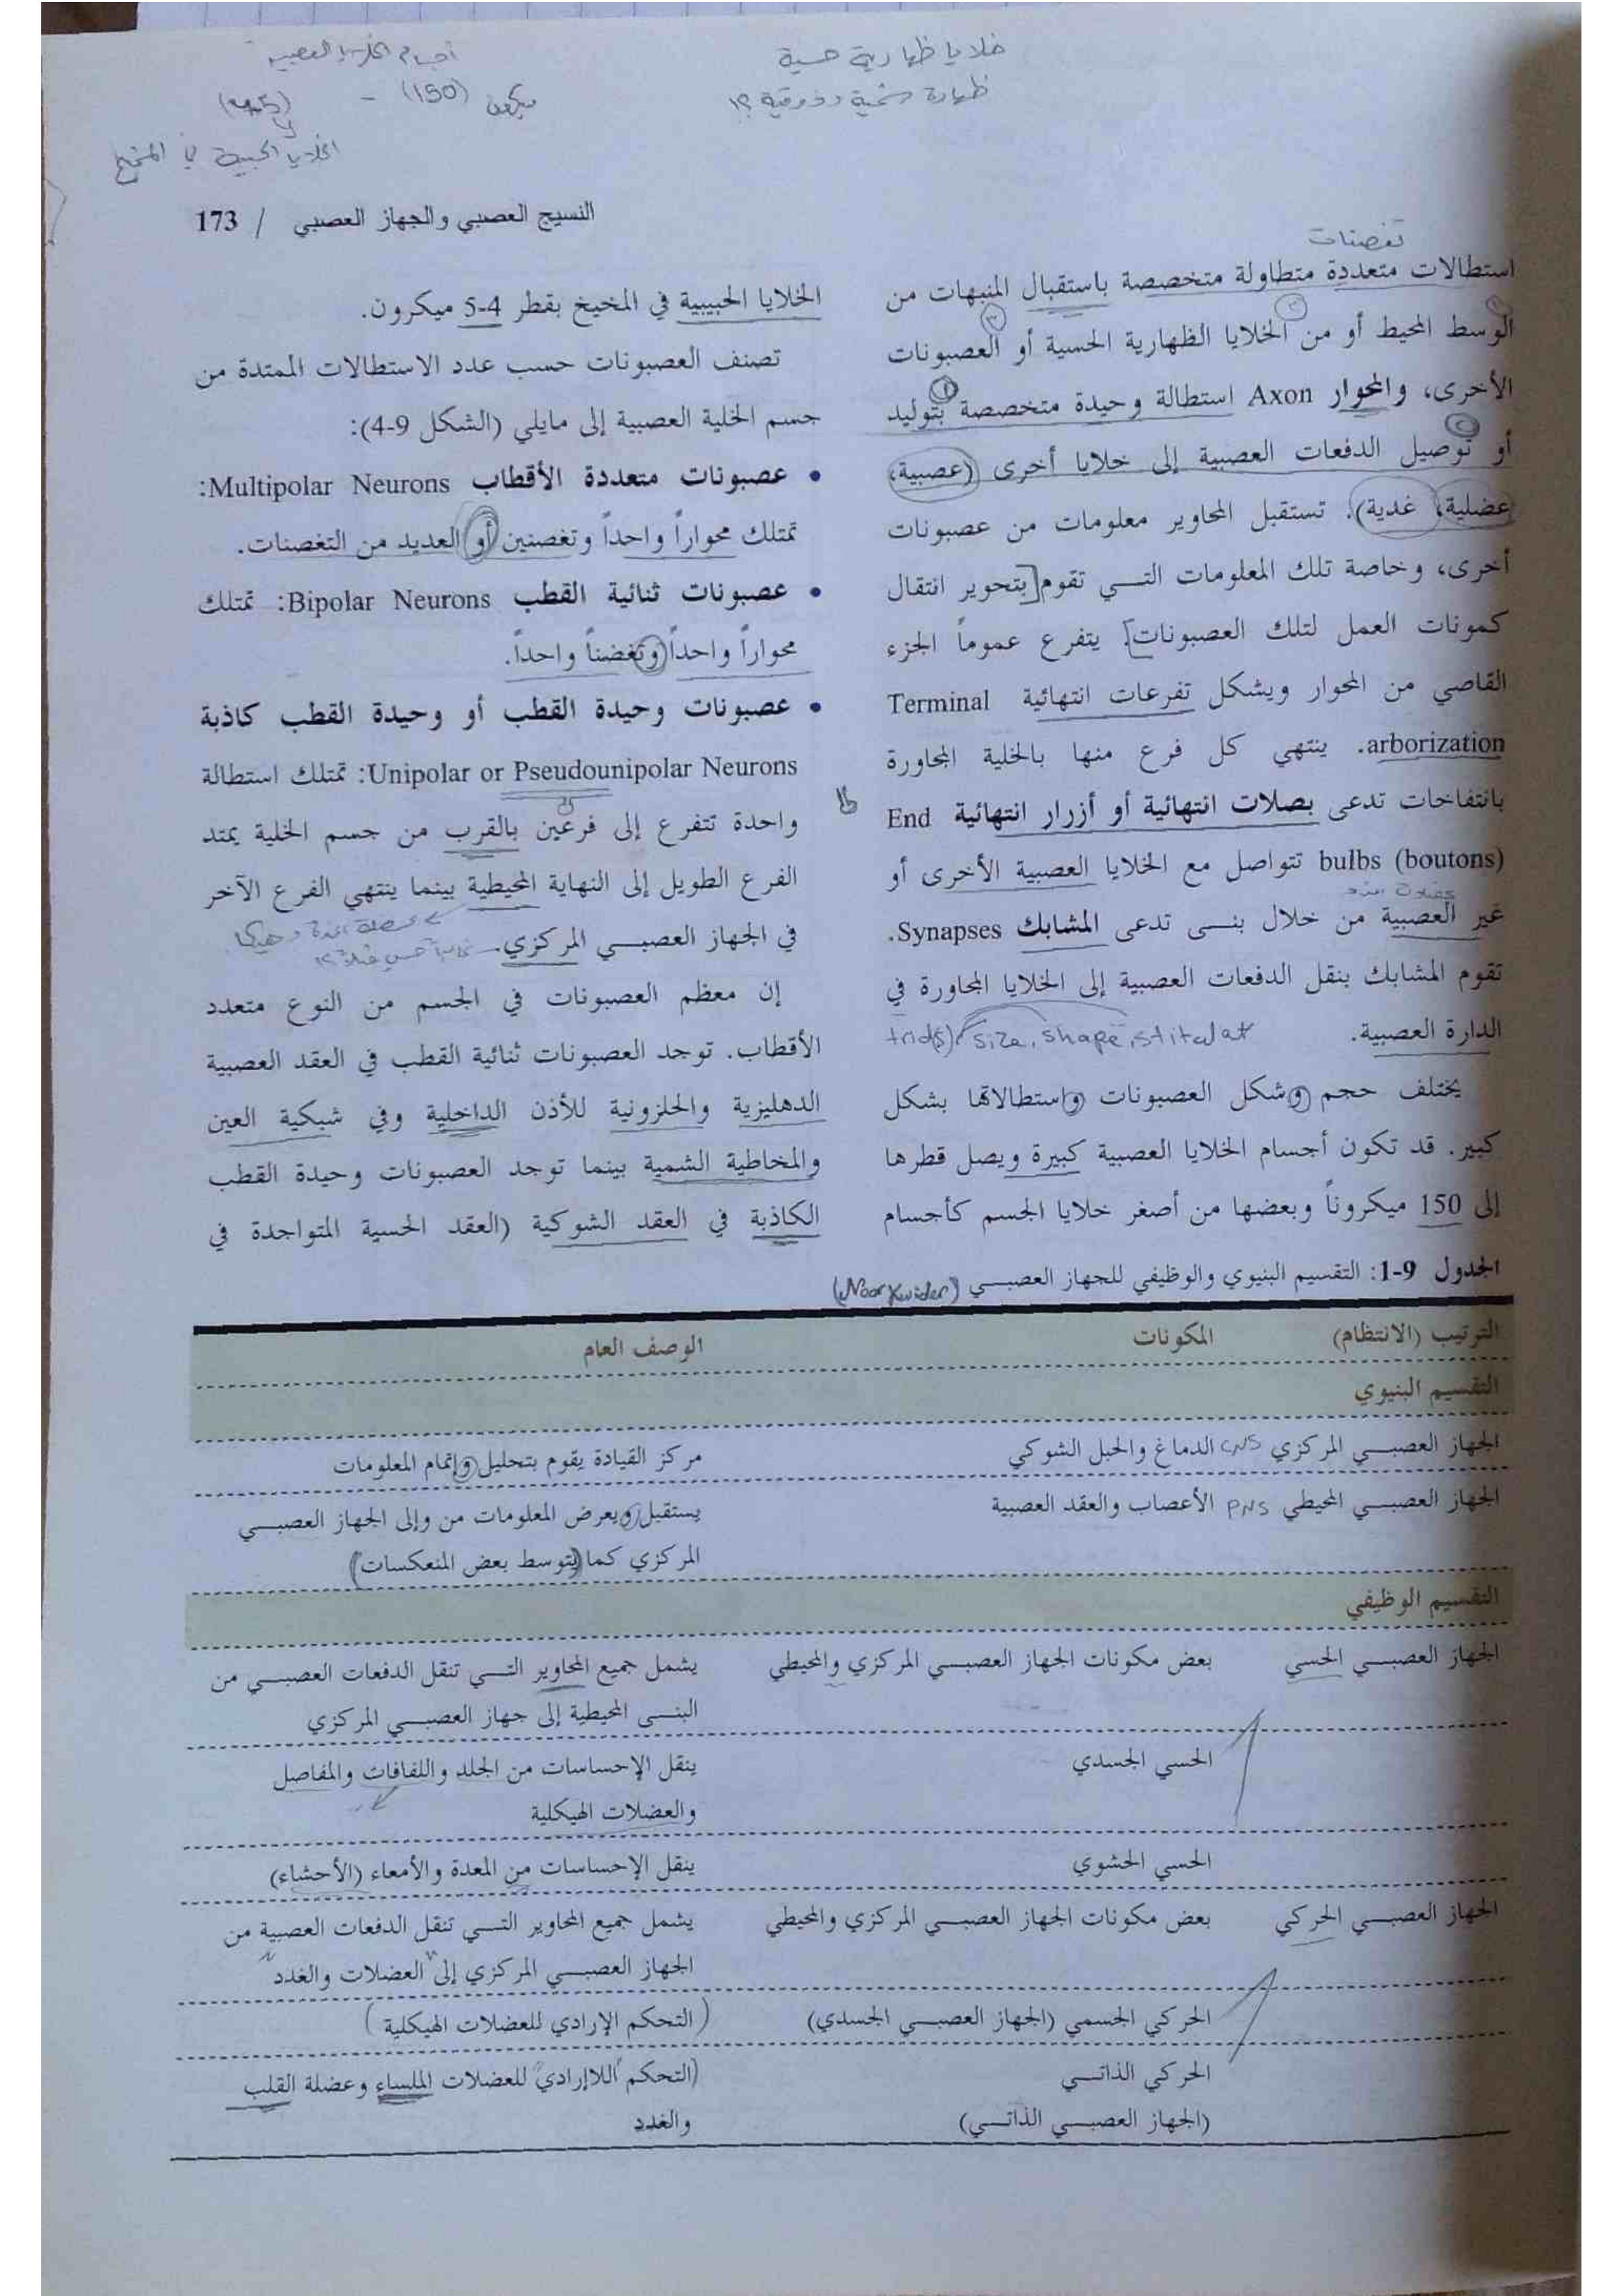 خلايا ظهارية حسية
ظهارة شمية وذوقية ؟!
أجسام الخلايا العصبية
(150) ميكرون
الخلايا الحبيبية في المخيخ
النسيج العصبي والجهاز العصبي / 173
تغصنات
استطالات متعددة متطاولة متخصصة باستقبال المنبهات من
الوسط المحيط أو من الخلايا الظهارية الحسية أو العصبونات
الأخرى، والمحوار Axon استطالة وحيدة متخصصة بتوليد
أو توصيل الدفعات العصبية إلى خلايا أخرى (عصبية،
عضلية، غدية). تستقبل المحاوير معلومات من عصبونات
أخرى، وخاصة تلك المعلومات التي تقوم بتحوير انتقال
كمونات العمل لتلك العصبونات. يتفرع عموماً الجزء
القاصي من المحوار ويشكل تفرعات انتهائية Terminal
arborization. ينتهي كل فرع منها بالخلية المجاورة
بانتفاخات تدعى بصلات انتهائية أو أزرار انتهائية End
bulbs (boutons) تتواصل مع الخلايا العصبية الأخرى أو
غير العصبية من خلال بنى تدعى المشابك Synapses.
تقوم المشابك بنقل الدفعات العصبية إلى الخلايا المجاورة في
الدارة العصبية.
size, shape
يختلف حجم وشكل العصبونات واستطالاتها بشكل
كبير. قد تكون أجسام الخلايا العصبية كبيرة ويصل قطرها
إلى 150 ميكروناً وبعضها من أصغر خلايا الجسم كأجسام
الخلايا الحبيبية في المخيخ بقطر 4-5 ميكرون.
تصنف العصبونات حسب عدد الاستطالات الممتدة من
جسم الخلية العصبية إلى مايلي (الشكل 9-4):
• عصبونات متعددة الأقطاب Multipolar Neurons:
تمتلك محواراً واحداً وتغصنين أو العديد من التغصنات.
• عصبونات ثنائية القطب Bipolar Neurons: تمتلك
محواراً واحداً وتغضناً واحداً.
• عصبونات وحيدة القطب أو وحيدة القطب كاذبة
Unipolar or Pseudounipolar Neurons: تمتلك استطالة
واحدة تتفرع إلى فرعين بالقرب من جسم الخلية يمتد
الفرع الطويل إلى النهاية المحيطية بينما ينتهي الفرع الآخر
في الجهاز العصبي المركزي.
إن معظم العصبونات في الجسم من النوع متعدد
الأقطاب. توجد العصبونات ثنائية القطب في العقد العصبية
الدهليزية والحلزونية للأذن الداخلية وفي شبكية العين
والمخاطية الشمية بينما توجد العصبونات وحيدة القطب
الكاذبة في العقد الشوكية (العقد الحسية المتواجدة في
الجدول 9-1: التقسيم البنيوي والوظيفي للجهاز العصبي (Noor Kwider)
الترتيب (الانتظام) المكونات الوصف العام
التقسيم البنيوي
الجهاز العصبي المركزي CNS الدماغ والحبل الشوكي مركز القيادة يقوم بتحليل وإتمام المعلومات
الجهاز العصبي المحيطي PNS الأعصاب والعقد العصبية يستقبل ويعرض المعلومات من وإلى الجهاز العصبي
المركزي كما (يتوسط بعض المنعكسات)
التقسيم الوظيفي
الجهاز العصبي الحسي بعض مكونات الجهاز العصبي المركزي والمحيطي يشمل جميع المحاوير التي تنقل الدفعات العصبي من
البنى المحيطية إلى جهاز العصبي المركزي
الحسي الجسدي ينقل الإحساسات من الجلد واللفافات والمفاصل
والعضلات الهيكلية
الحسي الحشوي ينقل الإحساسات من المعدة والأمعاء (الأحشاء)
الجهاز العصبي الحركي بعض مكونات الجهاز العصبي المركزي والمحيطي يشمل جميع المحاوير التي تنقل الدفعات العصبية من
الجهاز العصبي المركزي إلى العضلات والغدد
الحركي الجسمي (الجهاز العصبي الجسدي) (التحكم الإرادي للعضلات الهيكلية)
الحركي الذاتي (التحكم اللاإرادي للعضلات الملساء وعضلة القلب
(الجهاز العصبي الذاتي) والغدد